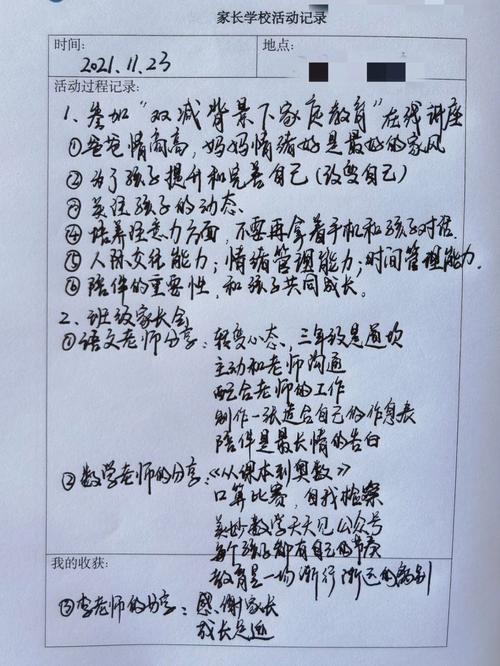 家长学校活动记录
时间：2021.11.23 地点：
活动过程记录：
1、参加“双减背景下家庭教育”在线讲座
①爸爸情商高，妈妈情绪好是最好的家风
②为了孩子提升和完善自己（改变自己）
③关注孩子的动态
④培养注意力方面，不要再拿着手机和孩子对话
⑤人际交往能力；情绪管理能力；时间管理能力.
⑥陪伴的重要性，和孩子共同成长。
2、班级家长会
①语文老师分享：转变心态、三年级是道坎
主动和老师沟通
配合老师的工作
制作一张适合自己的作息表
陪伴是最长情的告白
②数学老师的分享：《从课本到奥数》
口算比赛，自我检察
美妙数学天天见公众号
每个孩子都有自己的节奏
教育是一场渐行渐远的离别
我的收获：
③李老师的分享：感谢家长
成长足迹